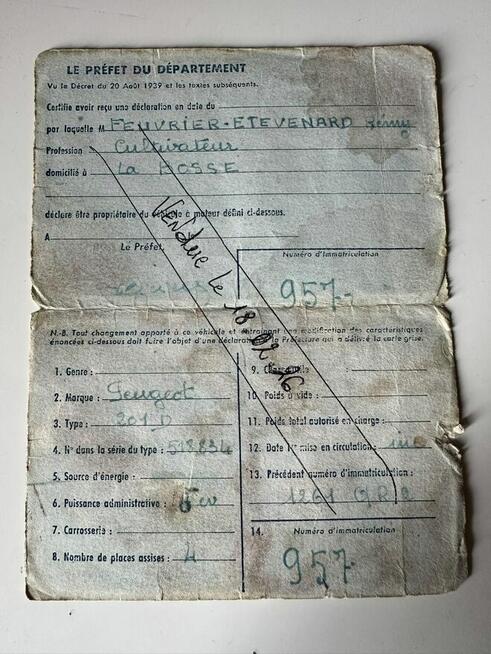 LE PRÉFET DU DÉPARTEMENT
Vu le Décret du 20 Août 1939 et les textes subséquents.
Certifie avoir reçu une déclaration en date du
par laquelle M FEUVRIER-ETEVENARD Rémy
Profession Cultivateur
domicilié à La BOSSE
déclare être propriétaire du véhicule à moteur défini ci-dessous.
A le
Le Préfet,
Numéro d'Immatriculation
957-
Vendue le 18-02-16
N.-B. Tout changement apporté à ce véhicule et entraînant une modification des caractéristiques
énoncées ci-dessous doit faire l'objet d'une déclaration à la Préfecture qui a délivré la carte grise.
1. Genre :
2. Marque : Peugeot
3. Type : 201 D
4. N° dans la série du type : 518834
5. Source d'énergie :
6. Puissance administrative :
7. Carrosserie :
8. Nombre de places assises : 4
9. Charge utile :
10. Poids à vide :
11. Poids total autorisé en charge :
12. Date 1re mise en circulation :
13. Précédent numéro d'immatriculation :
1261
14. Numéro d'immatriculation
957-